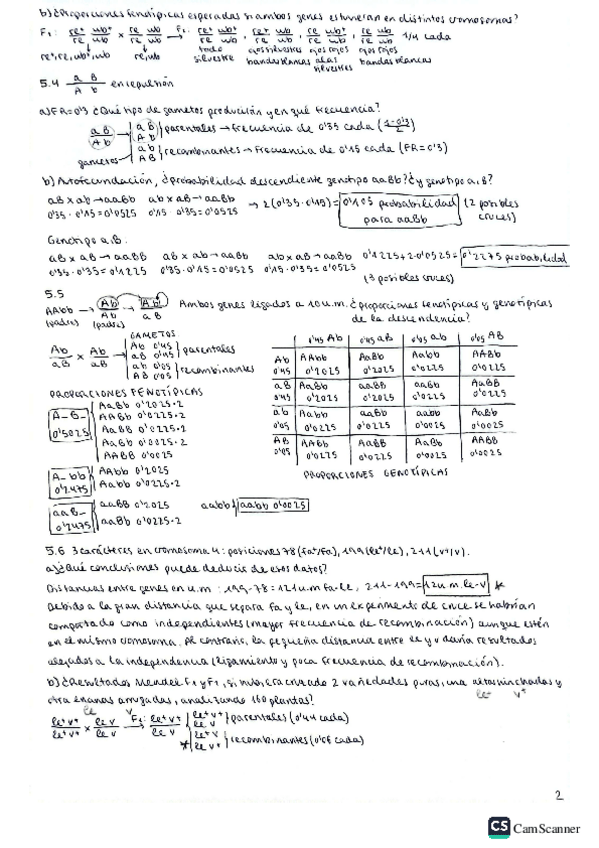 b) ¿Proporciones fenotípicas esperadas si ambos genes estuvieran en distintos cromosomas?
F1: re+ wb+ / re wb x re wb / re wb → F1: re+ wb+ / re wb , re+ wb / re wb , re wb+ / re wb , re wb / re wb 1/4 cada
re+, re, wb+, wb re, wb todo silvestre ojos silvestres bandas blancas ojos rojos alas silvestres ojos rojos bandas blancas
5.4 a B / A b en repulsión
a) FR=0'3 ¿Qué tipo de gametos producirán y en qué frecuencia?
aB / Ab → aB Ab } parentales → frecuencia de 0'35 cada (1-0'3 / 2)
gametos ab AB } recombinantes → frecuencia de 0'15 cada (FR=0'3)
b) Autofecundación, ¿probabilidad descendiente genotipo aaBb? ¿y genotipo a, B?
aB x ab → aaBb ab x aB → aaBb → 2(0'35·0'15) = 0'105 probabilidad para aaBb (2 posibles cruces)
0'35 · 0'15 = 0'0525 0'15 · 0'35 = 0'0525
Genotipo a, B.
aB x aB → aaBB aB x ab → aaBb ab x aB → aaBb 0'1225 + 2·0'0525 = 0'2275 probabilidad
0'35 · 0'35 = 0'1225 0'35 · 0'15 = 0'0525 0'15 · 0'35 = 0'0525 (3 posibles cruces)
5.5
AAbb → Ab / Ab → Ab / aB Ambos genes ligados a 10 u.m. ¿proporciones fenotípicas y genotípicas de la descendencia?
(padres) (padres)
GAMETOS
Ab / aB x Ab / aB → Ab 0'45 aB 0'45 } parentales
ab 0'05 AB 0'05 } recombinantes
0'45 Ab 0'45 aB 0'05 ab 0'05 AB
Ab 0'45 AAbb 0'2025 AaBb 0'2025 Aabb 0'0225 AABb 0'0225
aB 0'45 AaBb 0'2025 aaBB 0'2025 aaBb 0'0225 AaBB 0'0225
ab 0'05 Aabb 0'0225 aaBb 0'0225 aabb 0'0025 AaBb 0'0025
AB 0'05 AABb 0'0225 AaBB 0'0225 AaBb 0'0025 AABB 0'0025
PROPORCIONES GENOTÍPICAS
PROPORCIONES FENOTÍPICAS
A-B- 0'5025 AaBb 0'2025·2
AABb 0'0225·2
AaBB 0'0225·2
AaBb 0'0025·2
AABB 0'0025
A-bb 0'2475 AAbb 0'2025
Aabb 0'0225·2
aaB- 0'2475 aaBB 0'2025 aabb aabb 0'0025
aaBb 0'0225·2
5.6 3 carácteres en cromosoma 4: posiciones 78 (fa+/fa), 199 (le+/le), 211 (v+/v).
a) ¿Qué conclusiones puede deducir de estos datos?
Distancias entre genes en u.m: 199-78 = 121 u.m fa-le, 211-199 = 12 u.m. le-v *
Debido a la gran distancia que separa fa y le, en un experimento de cruce se habrían
comportado como independientes (mayor frecuencia de recombinación) aunque estén
en el mismo cromosoma. Al contrario, la pequeña distancia entre le y v daría resultados
alejados a la independencia (ligamiento y poca frecuencia de recombinación).
b) ¿Resultados Mendel F1 y F2, si hubiera cruzado 2 variedades puras, una altas hinchadas y
otra enanas arrugadas, analizando 160 plantas? le+ v+
le v
le+ v+ / le+ v+ x le v / le v → F1: le+ v+ / le v le+ v+ le v } parentales (0'44 cada)
* le v+ } recombinantes (0'06 cada)
2
CS CamScanner